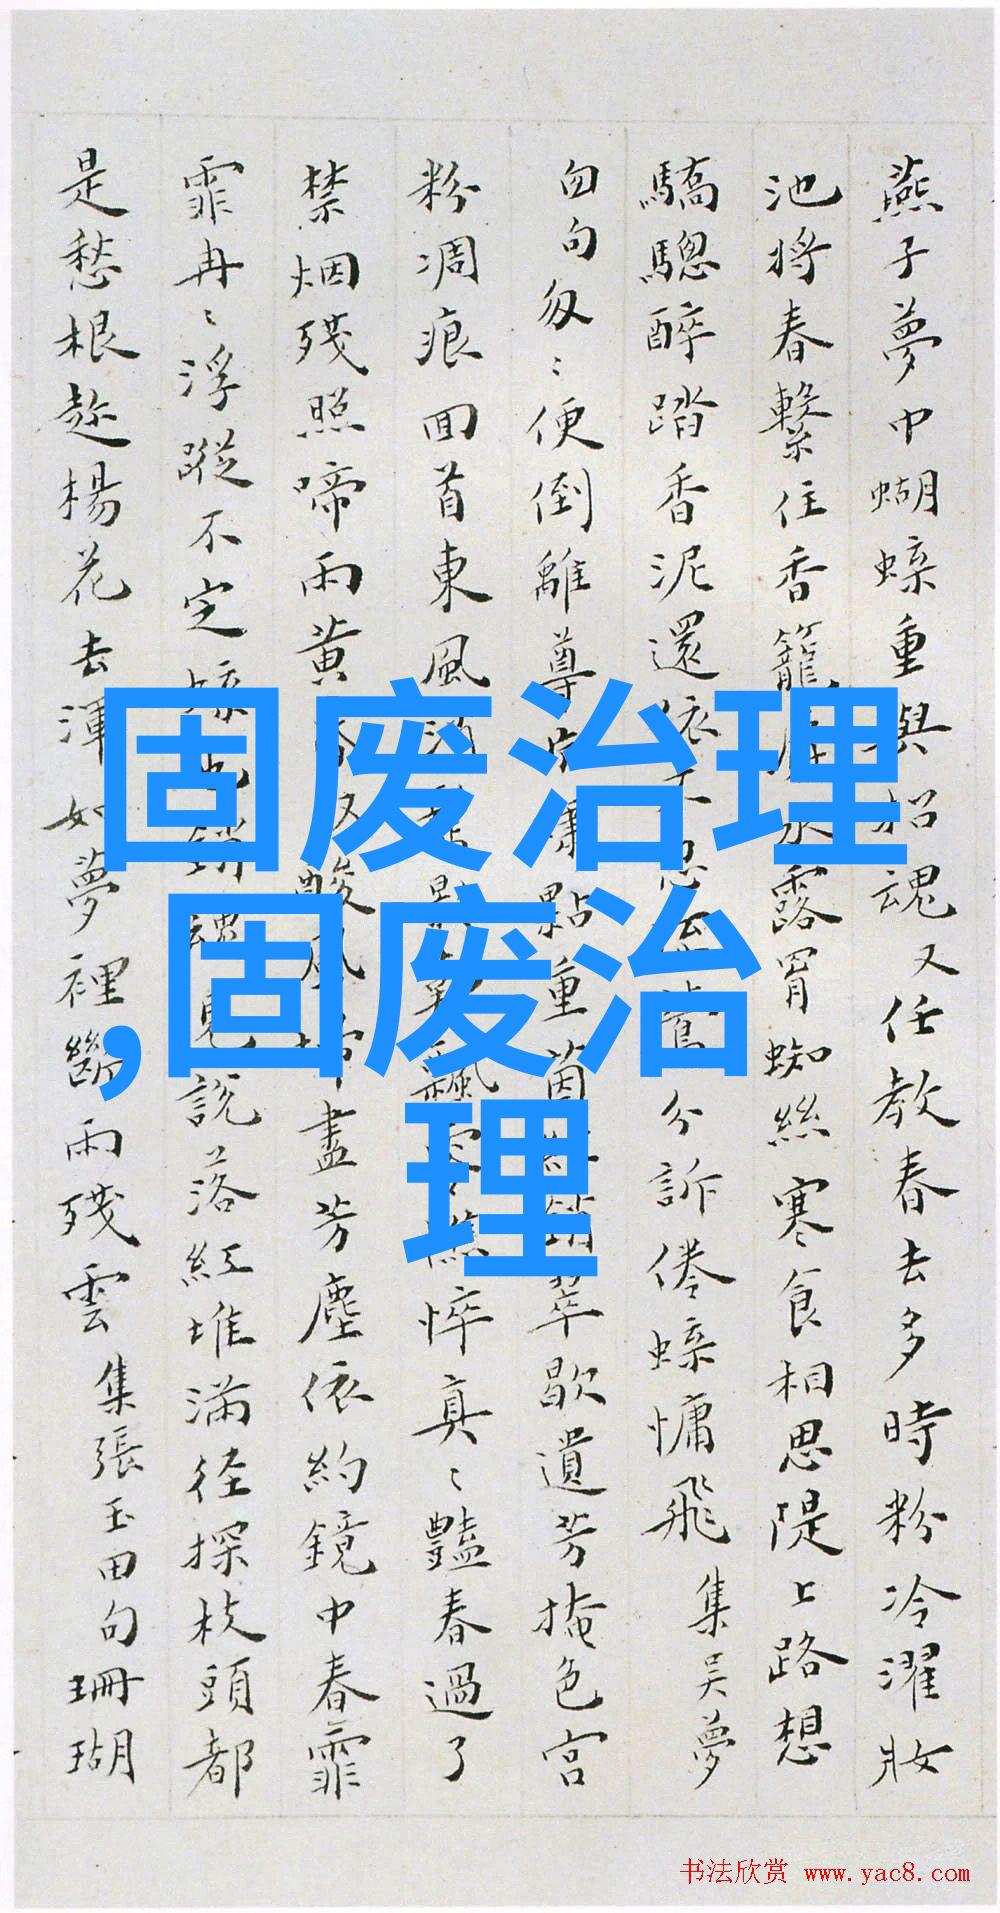 燕子夢中蝴蜨重與招魂又任教春去多時粉冷濯妝
池將春繫住香籠露胃蜘絲寒食相思隄上路想
驕驄醉踏香泥還依分訴倦蜨慵飛 集吴夢
勿句匆〻便倒離尊點重茵翠歇遺芳掩色宫
粉凋痕回首東風悴真〻豔春過了
禁烟殘照啼雨黄酸風盡芳塵依約鏡中春霏
霏冉〻浮蹤不定説落紅堆满径探枝頭都
是愁根趁楊花去渾如夢裡斷雨殘雲 集張玉田句珊瑚
固废治理
,固废治
理
书法欣赏 www.yac8.com